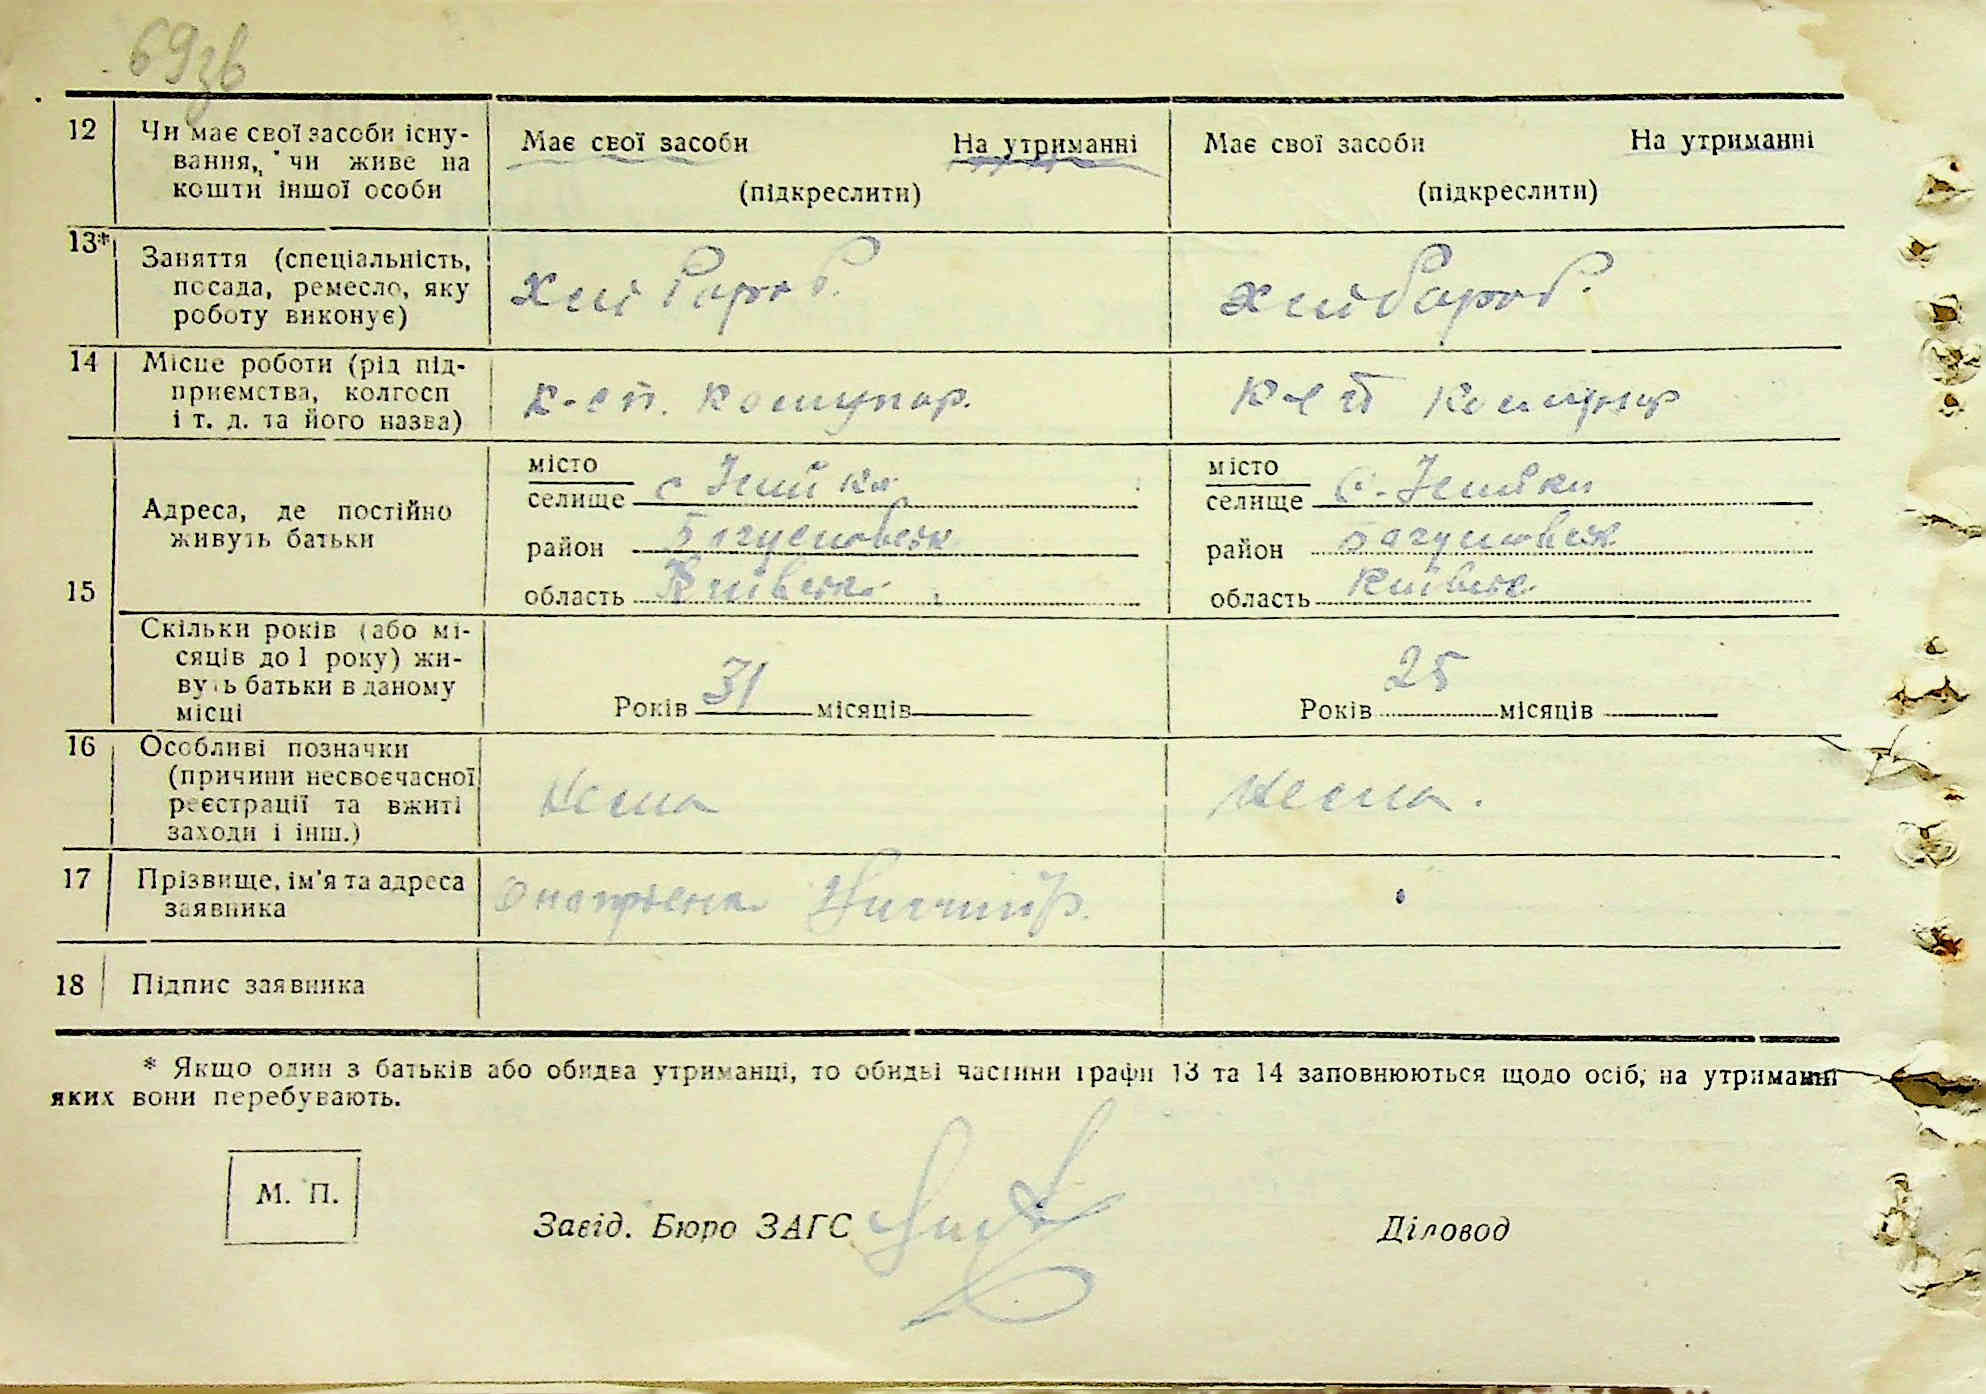 69зв
12 Чи має свої засоби існу- Має свої засоби На утриманні Має свої засоби На утриманні
вання, чи живе на
кошти іншої особи (підкреслити) (підкреслити)
13* Заняття (спеціальність,
посада, ремесло, яку Хлібороб. Хлібороб.
роботу виконує)
14 Місце роботи (рід під-
приємства, колгосп к-сп. Комунар. К-сп Комунар
і т. д. та його назва)
місто місто
селище с селище с.
Адреса, де постійно
живуть батьки район район
15 область Київська область Київськ
Скільки років (або мі-
сяців до 1 року) жи-
вуть батьки в даному
місці Років 31 місяців Років 25 місяців
16 Особливі позначки
(причини несвоєчасної Нема Нема.
реєстрації та вжиті
заходи і інш.)
17 Прізвище, ім'я та адреса
заявника
18 Підпис заявника
* Якщо один з батьків або обидва утриманці, то обидві частини графи 13 та 14 заповнюються щодо осіб, на утриманні
яких вони перебувають.
М. П.
Завід. Бюро ЗАГС Діловод